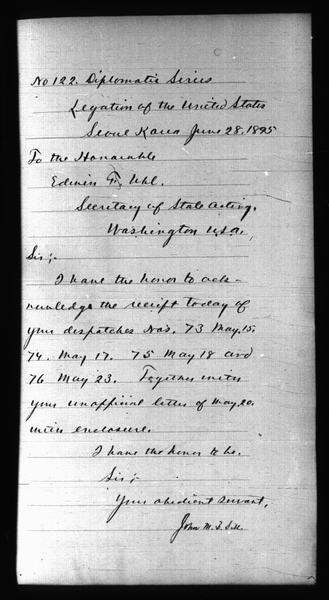 No 122. Diplomatic Series
Legation of the United States
Seoul Korea June 28, 1895
To the Honorable
Edwin F. Uhl.
Secretary of State Acting,
Washington U.S.A.
Sir;-
I have the honor to ack-
nowledge the receipt today of
your despatches Nos. 73 May 15
74. May 17. 75 May 18 and
76 May 23. Together with
your unofficial letter of May 20.
with enclosure.
I have the honor to be.
Sir;-
Your obedient servant,
John M. B. Sill